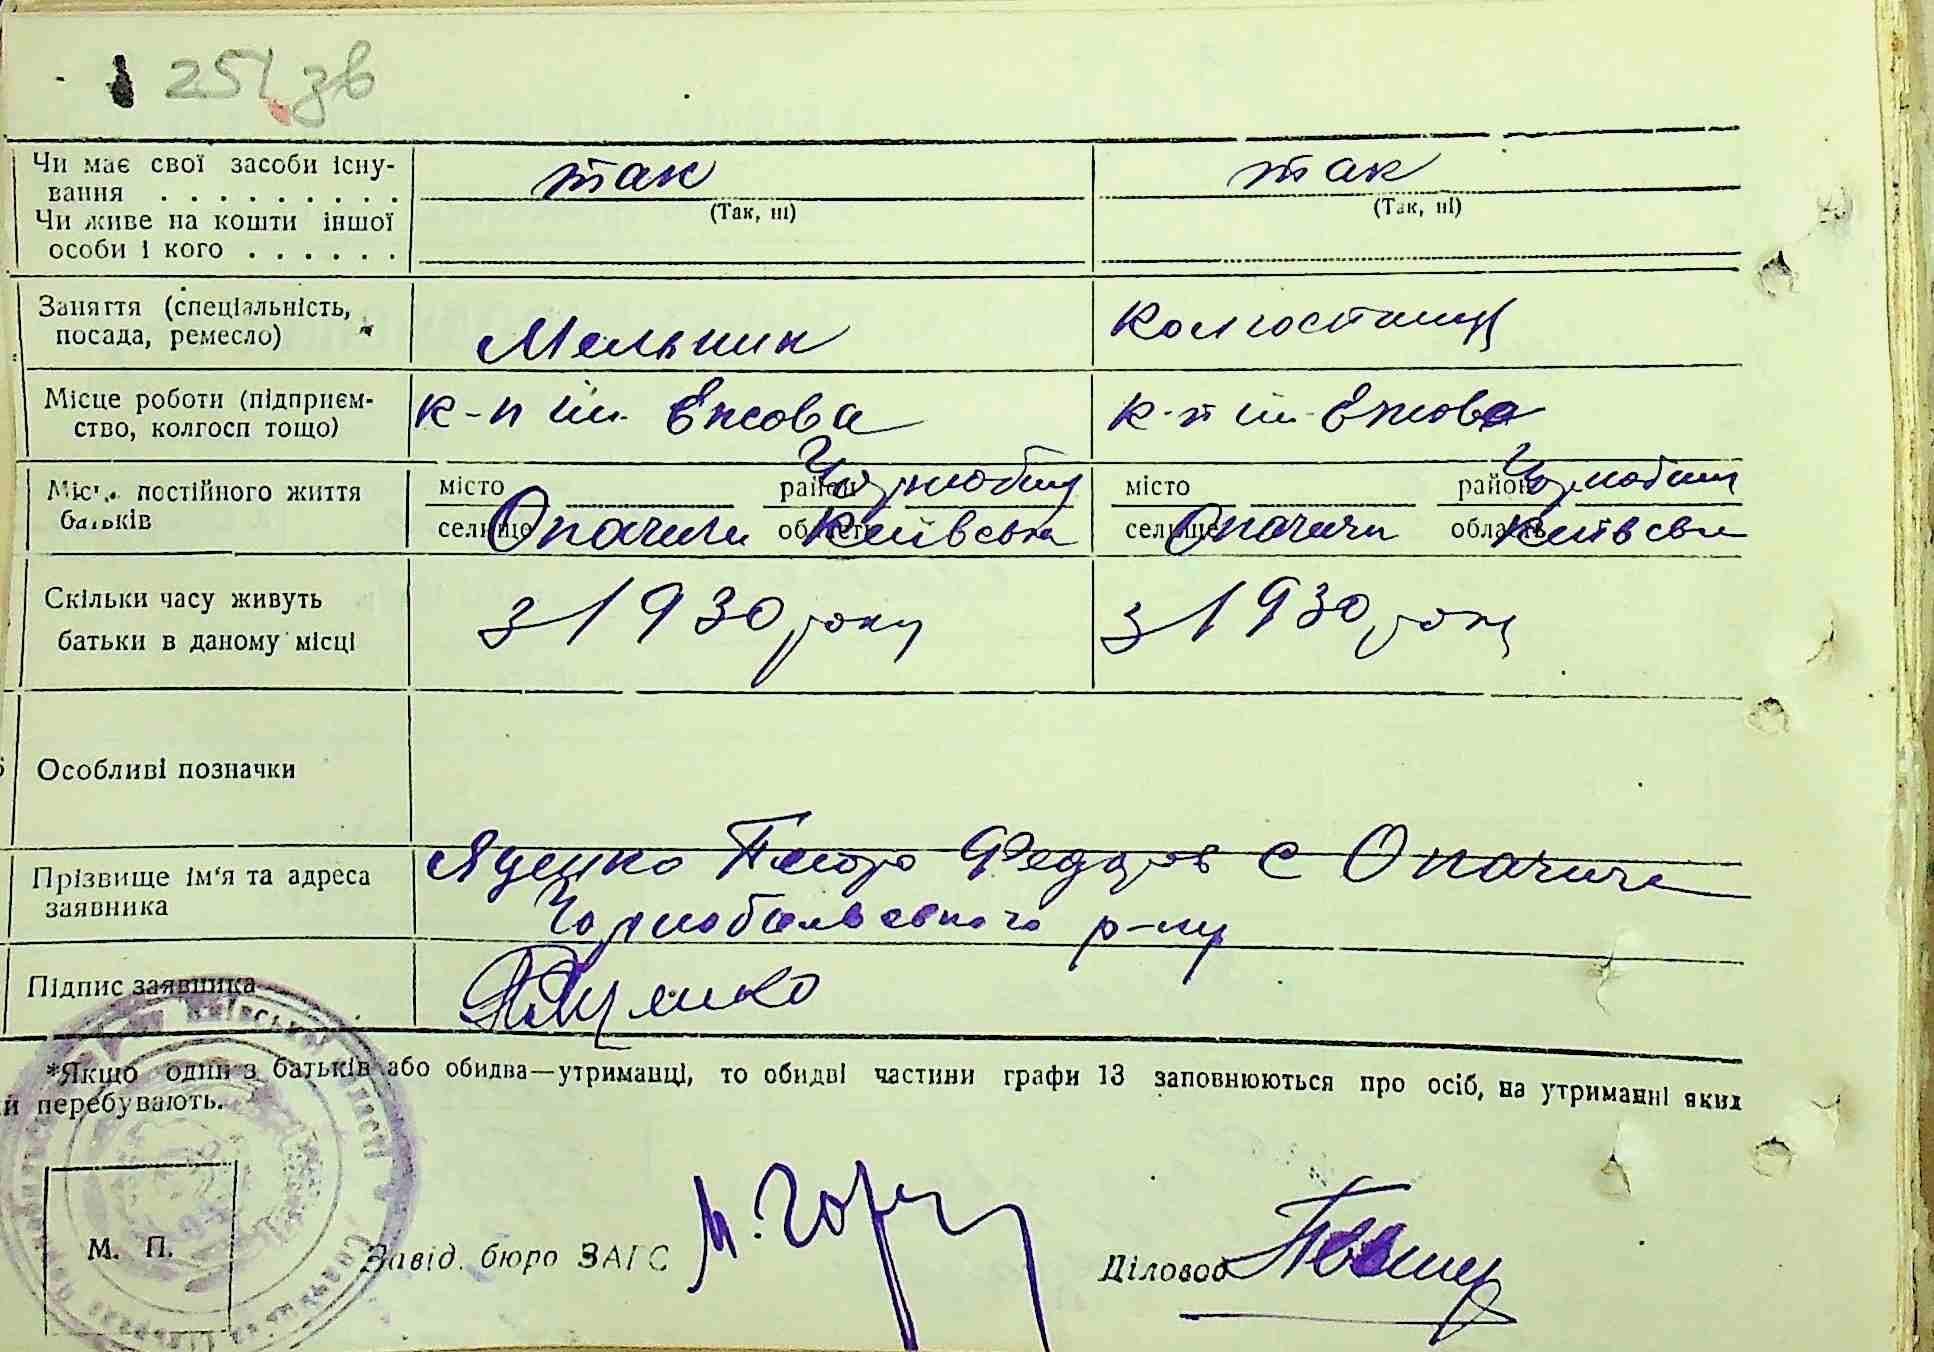 251 зв
Чи має свої засоби існу-
вання . . . . . . . . . . так так
(Так, ні) (Так, ні)
Чи живе на кошти іншої
особи і кого . . . . . .
Заняття (спеціальність,
посада, ремесло) Мельник колгоспниця
Місце роботи (підприєм-
ство, колгосп тощо) к-п ім. Єжова к-п ім. Єжова
Місце постійного життя
батьків
місто район Чорнобиль місто район Чорнобиль
селище Опачичи область Київська селище Опачичи область Київська
Скільки часу живуть
батьки в даному місці з 1930 року з 1930 року
Особливі позначки
Прізвище ім'я та адреса
заявника
Яценко Петро Федоров с Опачичі
Чорнобильського р-ну
Підпис заявника Яценко
*Якщо один з батьків або обидва—утриманці, то обидві частини графи 13 заповнюються про осіб, на утриманні яких
й перебувають.
М. П.
Завід. бюро ЗАГС
Діловод